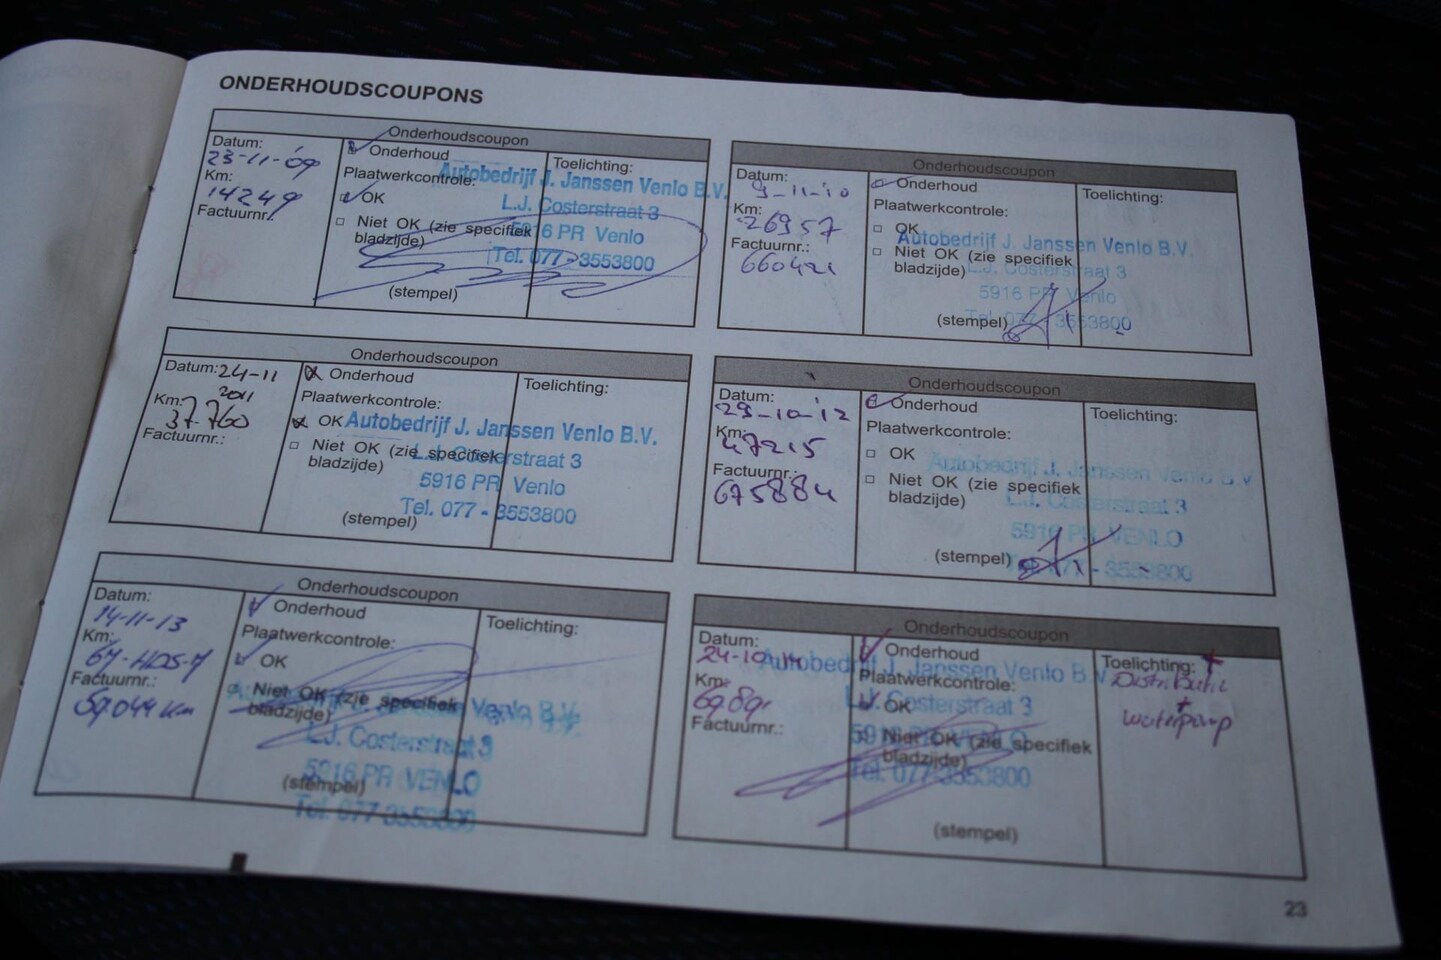 ONDERHOUDSCOUPONS
Onderhoudscoupon
Datum:
23-11-09
Km:
14249
Factuurnr.
Onderhoud
Plaatwerkcontrole:
OK
Niet OK (zie specifiek
bladzijde)
(stempel)
Toelichting:
Autobedrijf J. Janssen Venlo B.V.
L.J. Costerstraat 3
5916 PR Venlo
Tel. 077-3553800
Onderhoudscoupon
Datum:
9-11-'10
Km:
26957
Factuurnr.:
660421
Onderhoud
Plaatwerkcontrole:
OK
Niet OK (zie specifiek
bladzijde)
(stempel)
Toelichting:
Autobedrijf J. Janssen Venlo B.V.
L.J. Costerstraat 3
5916 PR Venlo
Tel. 077 - 3553800
Onderhoudscoupon
Datum: 24-11
2011
Km:
37.760
Factuurnr.:
Onderhoud
Plaatwerkcontrole:
OK
Niet OK (zie specifiek
bladzijde)
(stempel)
Toelichting:
Autobedrijf J. Janssen Venlo B.V.
L.J. Costerstraat 3
5916 PR Venlo
Tel. 077 - 3553800
Onderhoudscoupon
Datum:
29-10-'12
Km:
47215
Factuurnr.:
675884
Onderhoud
Plaatwerkcontrole:
OK
Niet OK (zie specifiek
bladzijde)
(stempel)
Toelichting:
Autobedrijf J. Janssen Venlo B.V.
L.J. Costerstraat 3
5916 PR VENLO
Tel. 077 - 3553800
Onderhoudscoupon
Datum:
14-11-13
Km:
67-HDS-7
Factuurnr.:
59044 km
Onderhoud
Plaatwerkcontrole:
OK
Niet OK (zie specifiek
bladzijde)
(stempel)
Toelichting:
Venlo B.V.
L.J. Costerstraat 3
5916 PR VENLO
Tel. 077-3553800
Onderhoudscoupon
Datum:
24-10
Km:
6989
Factuurnr.:
Onderhoud
Plaatwerkcontrole:
OK
Niet OK (zie specifiek
bladzijde)
(stempel)
Toelichting:
Distributie
+
waterpomp
Autobedrijf J. Janssen Venlo B.V.
L.J. Costerstraat 3
5916 PR VENLO
Tel. 077-3553800
23